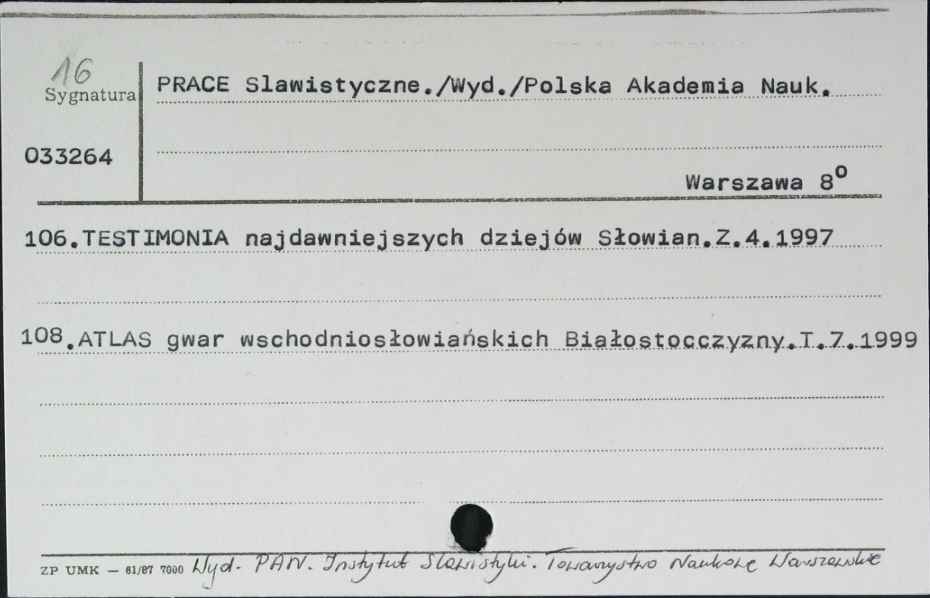 16
Sygnatura
PRACE Slawistyczne./Wyd./Polska Akademia Nauk.
033264
Warszawa 8º
106.TESTIMONIA najdawniejszych dziejów Słowian.Z.4.1997
108.ATLAS gwar wschodniosłowiańskich Białostocczyzny.T.7.1999
ZP UMK — 61/87 7000 Wyd. PAN. Instytut Slawistyki. Towarzystwo Naukowe Warszawskie